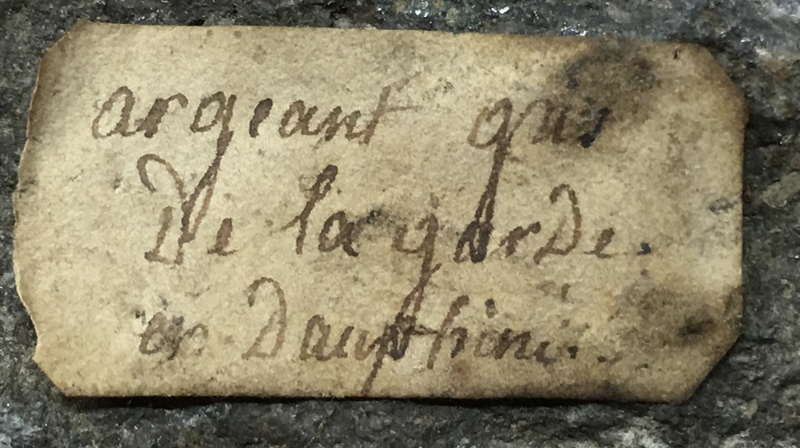 argeant gris
De la garde.
en Dauphiné.